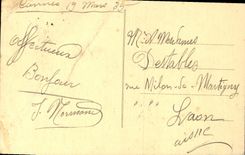 Cannes 19 Mars 35
Affectueux
Bonjour
J. Normand
Mr & Mesdames
Destables
rue Milon-de-Martigny
" "
Laon
Aisne